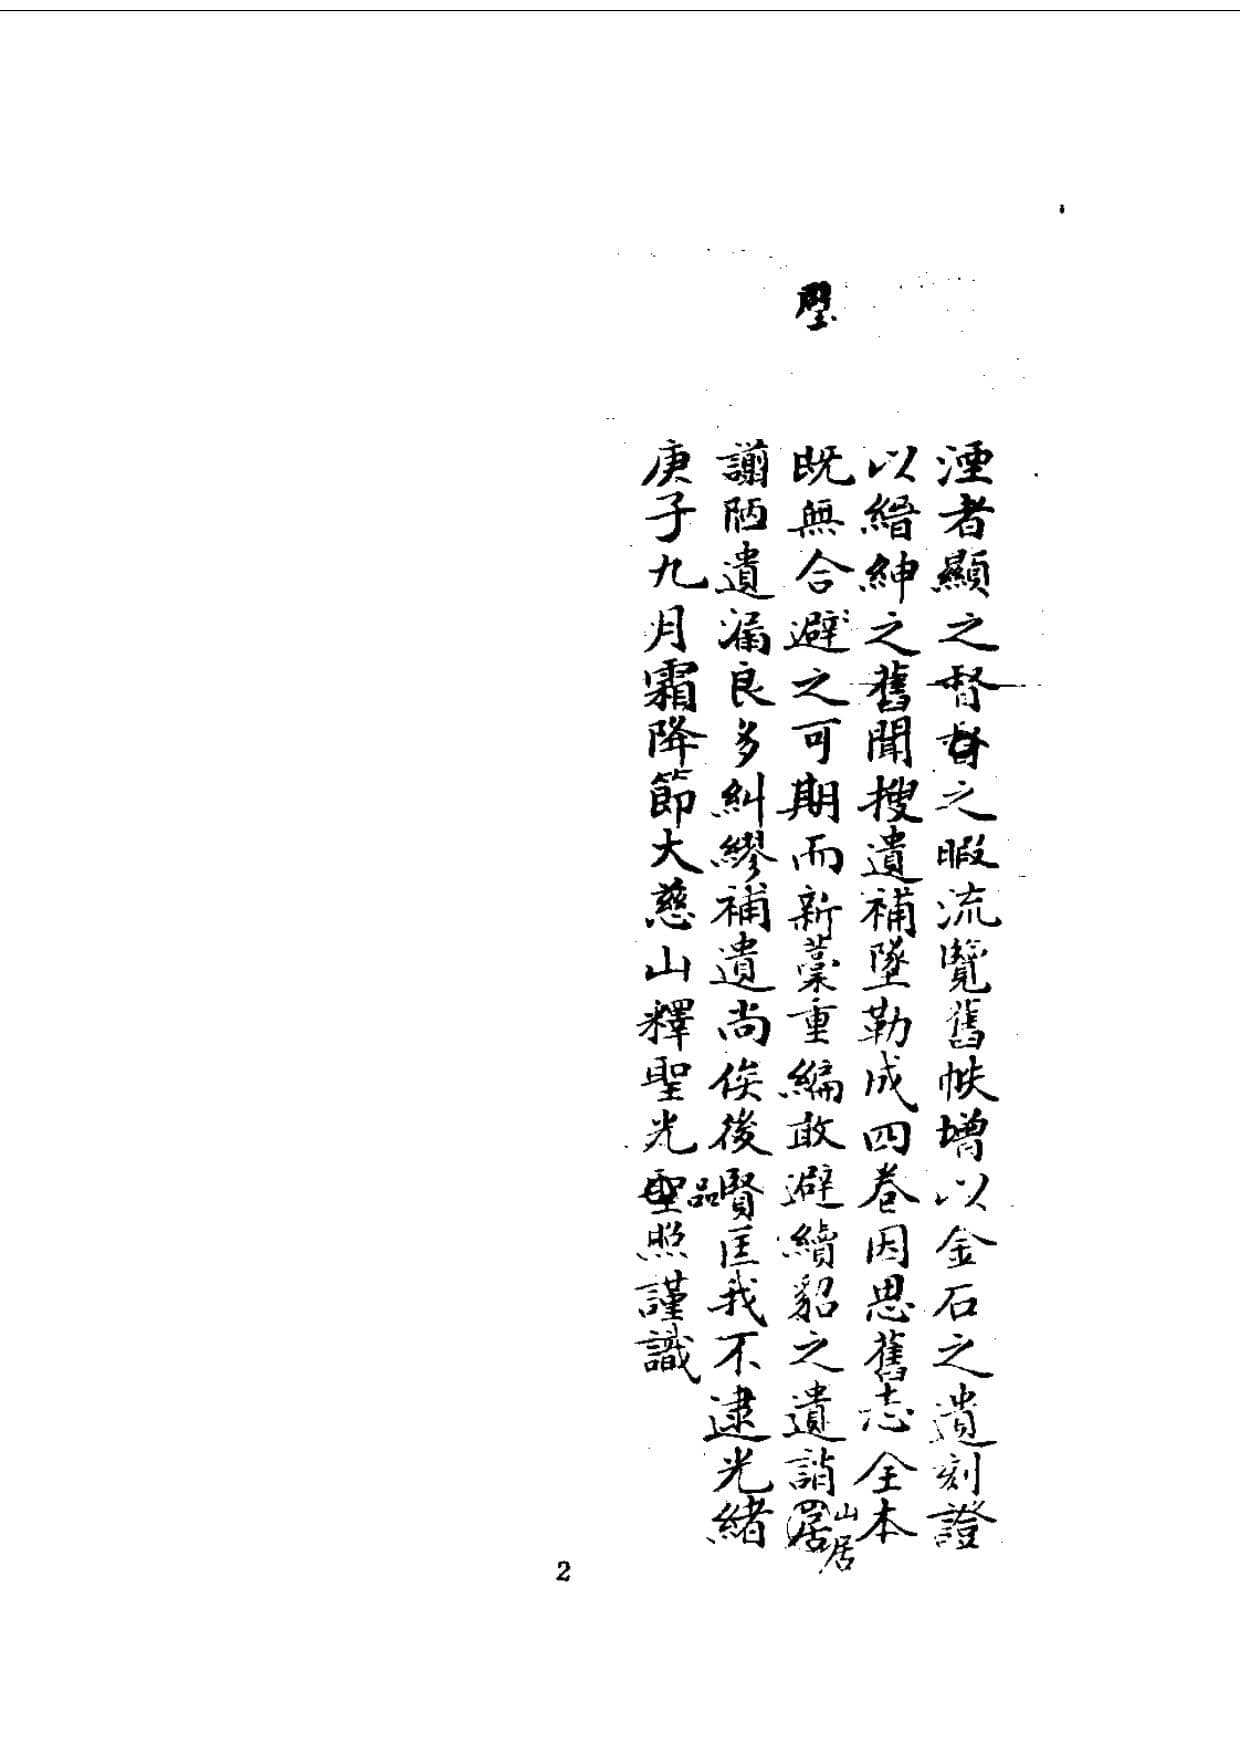 湮者顯之督督之暇流覽舊帙增以金石之遺刻證
以縉紳之舊聞搜遺補墜勒成四卷因思舊志全本
璧
既無合避之可期而新藁重編敢避續貂之遺誚居
山居
謭陋遺漏良多糾繆補遺尚俟後賢匡我不逮光緒
品
庚子九月霜降節大慈山釋聖光聖照謹識
2